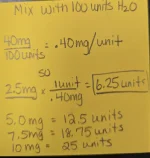 Mix with 100 units H2O
40mg
100units = .40mg/unit
50
2.5mg x 1unit = 6.25 units
.40mg
5.0mg = 12.5 units
7.5mg = 18.75 units
10mg = 25 units